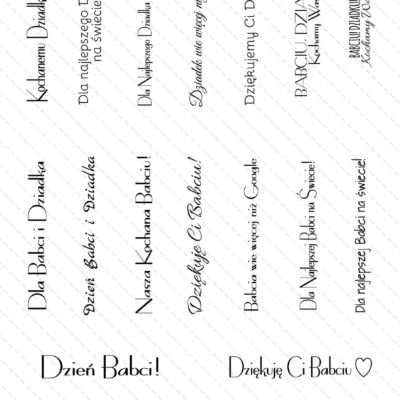 Kochanemu Dziadk
Dla najlepszego D
na świecie
Dla Najlepszego Dziadk
Dziadek wie więcej n
Dziękujemy Ci D
BABCIU, DZIA
Kochamy Wa
BABCIU! DZIADKU!
Kochamy Wa
Dla Babci i Dziadka
Dzień Babci i Dziadka
Nasza Kochana Babciu!
Dziękuję Ci Babciu!
Babcia wie więcej niż Google
Dla Najlepszej Babci na Świecie!
Dla najlepszej Babci na świecie!
Dzień Babci!
Dziękuję Ci Babciu